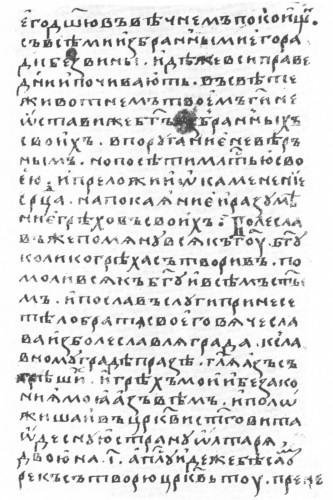 его дш҃ю въ вѣчнемъ покои иде҃.
съ всѣми избранными его ра
ди без вины. идѣже вси праве
днии почивають. въ свѣтѣ
животнемъ твоемъ ги҃ не
ѡстави же бг҃ъ избранныхъ
своихъ. в поругание невѣр
нымъ. но посѣти млт҃ию сво
ею. и преложи и ѡкаменение
срц҃а. на покаяние и разумѣ
ние грѣховъ своихъ: Болесла
въ же помянувся къ гоу҃ бг҃у
колико грѣха сътворивъ. по
моли вся къ бг҃у и всѣмъ ст҃ы
мъ. и пославъ слуги принесе
тѣло братя своего вячесла
ва из болеславля града. к слa
вному граду празѣ. гл҃я азъ съ
грѣших. и грѣхъ мои и безако
ния моя азъ вѣмъ. и полож
жиша и въ црк҃ви ст҃го вита
ѡ десную страну ѡлтаря
двою на. і҃. апл҃у идеже бѣ са
рекъ створю црк҃вь ту. прене